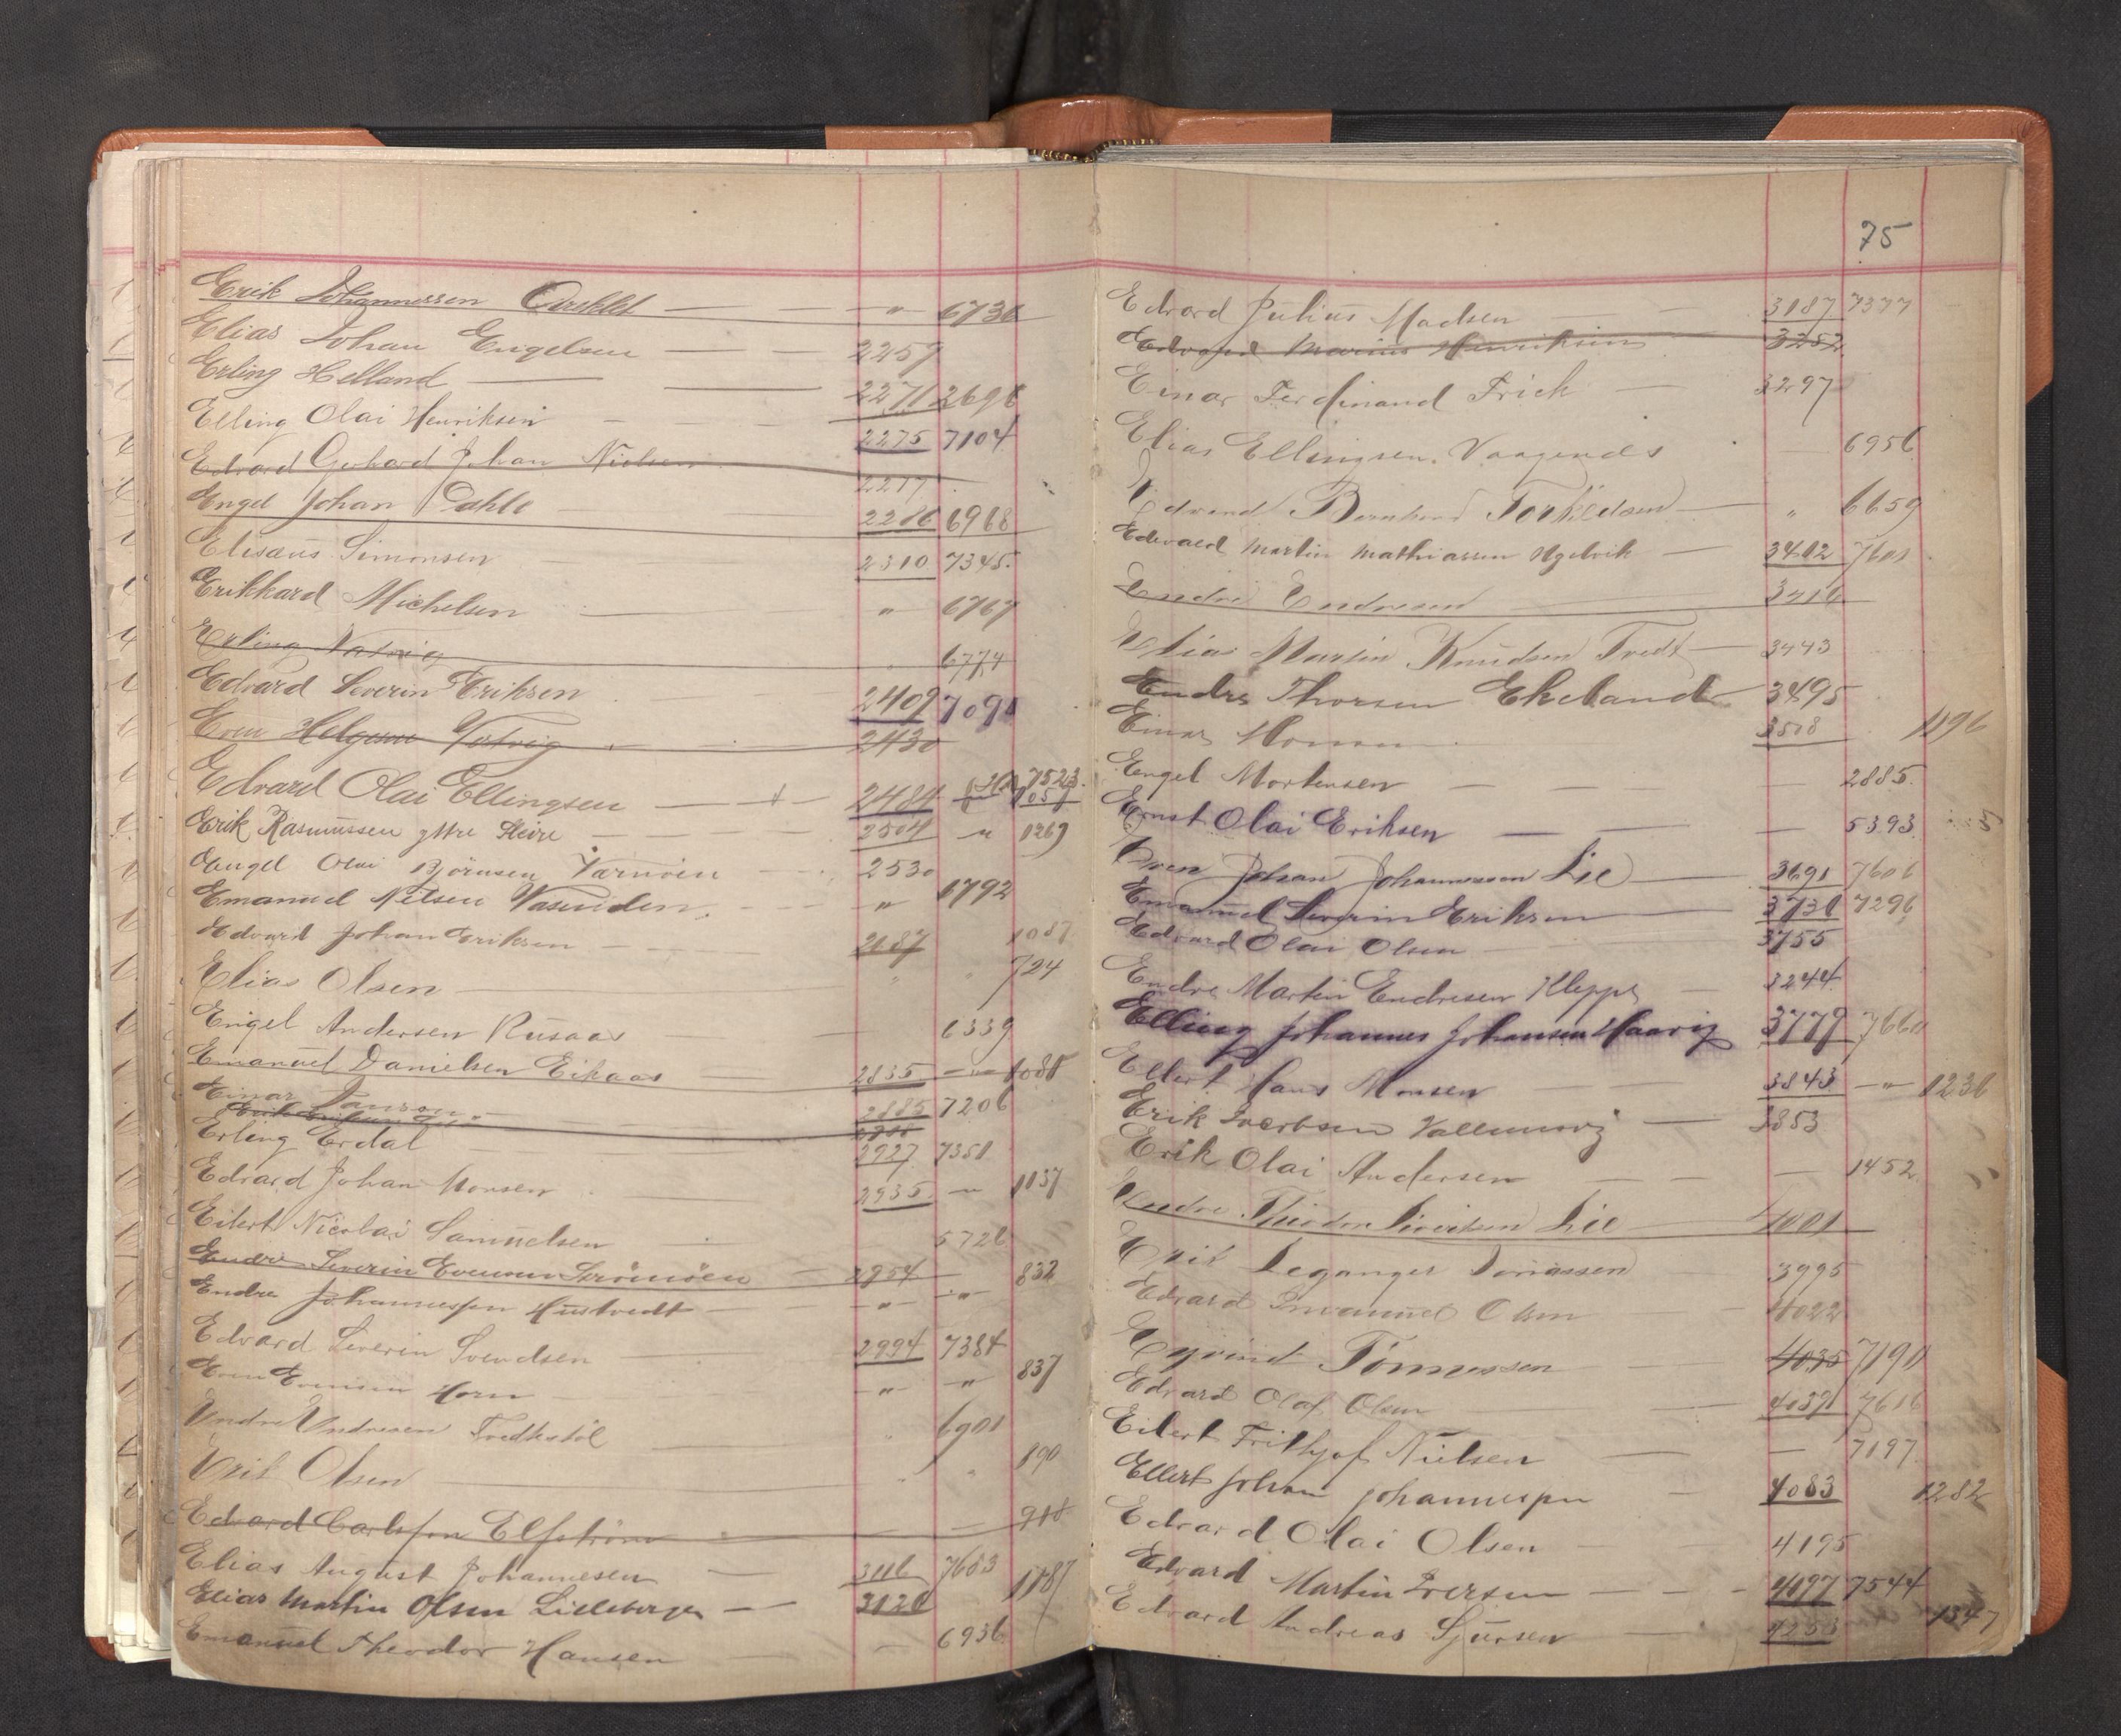 Erik Johannessen — — „ 6736
Elias Johan Engelsen — 2257
Erling Helland — — 2271 2696
Elling Olai Henriksen — — — 2275 7104
Edvard Gerhard Johan Nielsen
Engel Johan Dahle — — 2286 6968
Elisæus Simonsen — 2310 7345
Erikkard Michelsen — „ 6767
Erling Natvig 6774
Edvard Severin Eriksen 2409 7091
Even Helgesen 2430
Edvard Olai Ellingsen — + — 2484 7523
Erik Rasmussen yttre — — 2504 „ 1269
Engel Olai Bjørnsen Værnøen — 2530
Emanuel Nilsen Vasenden — — „ 6792
Edvard Johan Eriksen — — — 1087
Elias Olsen — „ „ 724
Engel Andersen Rusaas — — 6339
Emanuel Danielsen Eikaas — — 2835 — „ — 1085
Einar — 2885 7206
Erling Erdal — 2927 7351
Edvard Johan Monsen 2935 „ 1137
Eilert Nicolai Samuelsen 5726
Endre Severin Evensen Strømøen 2954 — 832
Endre Johannessen Hustvedt — „ „
Edvard Severin Svendsen 2994 7384
Even Evensen Horn — „ „ 837
Endre Endresen — „ 6901
Erik Olsen „ „ 890
Edvard Carlsson Elfstrøm — — 918
Elias August Johannesen — 3116 7683
Elias Martin Olsen Lilleberge — 3120 1187
Emanuel Theodor Hansen — 6936
75
Edvard Julius Madsen — — 3187 7377
Edvard Marius Henriksen 3252
Einar Ferdinand Frick — 3297
Elias Ellingsen Vaagenæs 6956
Edvard Bernhard Torkildsen — „ 6659
Edvard Martin Mathiassen — 3402 7601
Endre Endresen 3416
Elias Martin Knudsen Tvedt — 3443
Endre Thorsen Ekeland — 3495
Einar Monsen 3508 1196
Engel Mortensen — — — 2885
Ernst Olai Eriksen — — — 5393
Sven Johan Johannessen Lie — 3691 7606
Emanuel Severin Eriksen — 3731 7296
Edvard Olai Olsen — 3755
Endre Martin Endresen Kleppe — 3244
Elling Johannes Johansen Haavig 3779 7660
Ellert Hans Monsen 3843 — „ — 1236
Erik — 3853
Erik Olai Andersen — — — 1452
Endre Lie — 4001
Erik Leganger Jonassen 3995
Edvard Emanuel Olsen 4022
Eyvind Tønnessen — 4035 7191
Edvard Olaf Olsen — 7616
Eilert Frithjof Nielsen — — 7197
Ellert Johan Johannessen — 4083 1282
Edvard Olai Olsen 4195
Edvard Martin Iversen — — — 4197 7544
Edvard Andreas Sjursen — 4253 1347